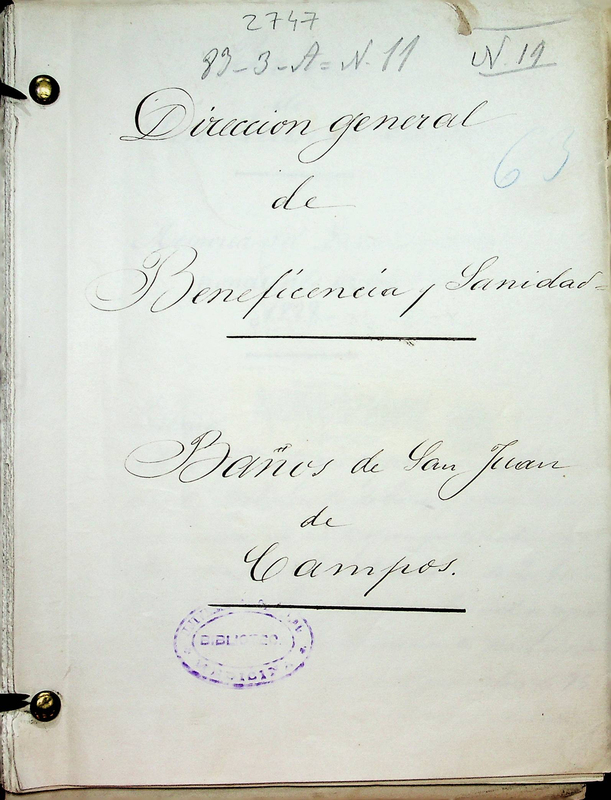 2747
83-3-A=N.11
N.19
Direccion general
65
de
Beneficencia y Sanidad=
Baños de San Juan
de
Campos.
BIBLIOTECA
MEDICINA